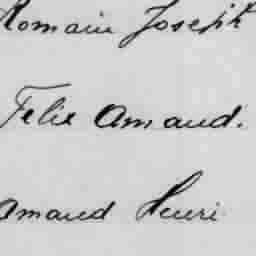 Romain Joseph
Felix Amand.
Amand Henri